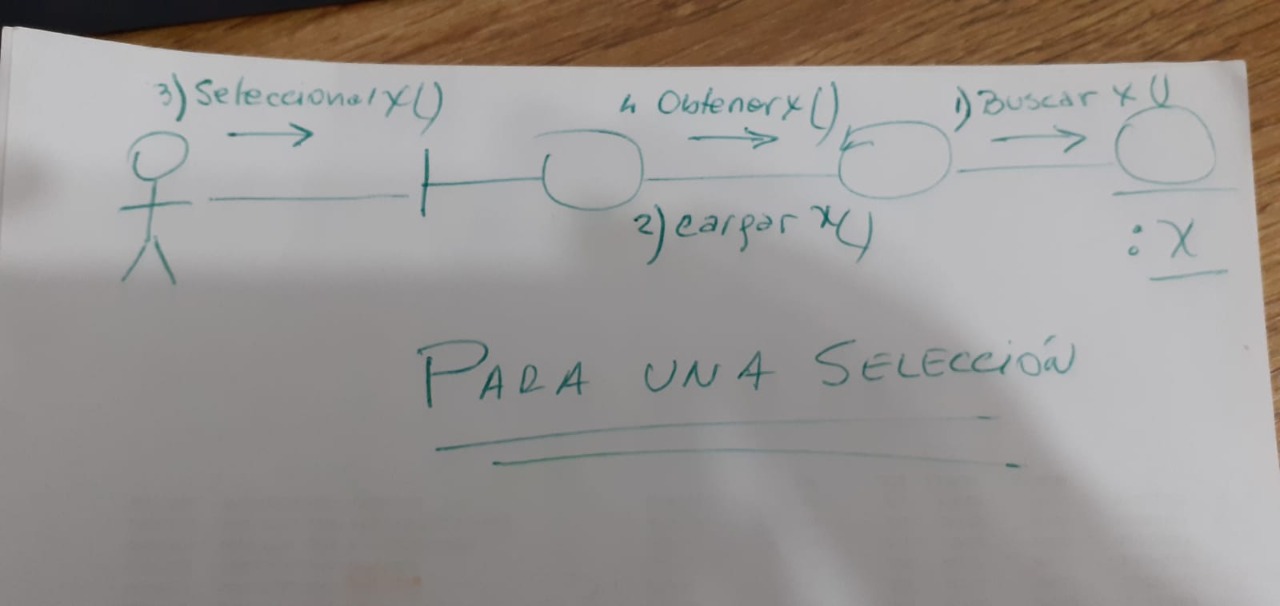 3) Seleccionar X()
4 Obtener X()
1) Buscar X ()
2) cargar X()
: X
PARA UNA SELECCIÓN